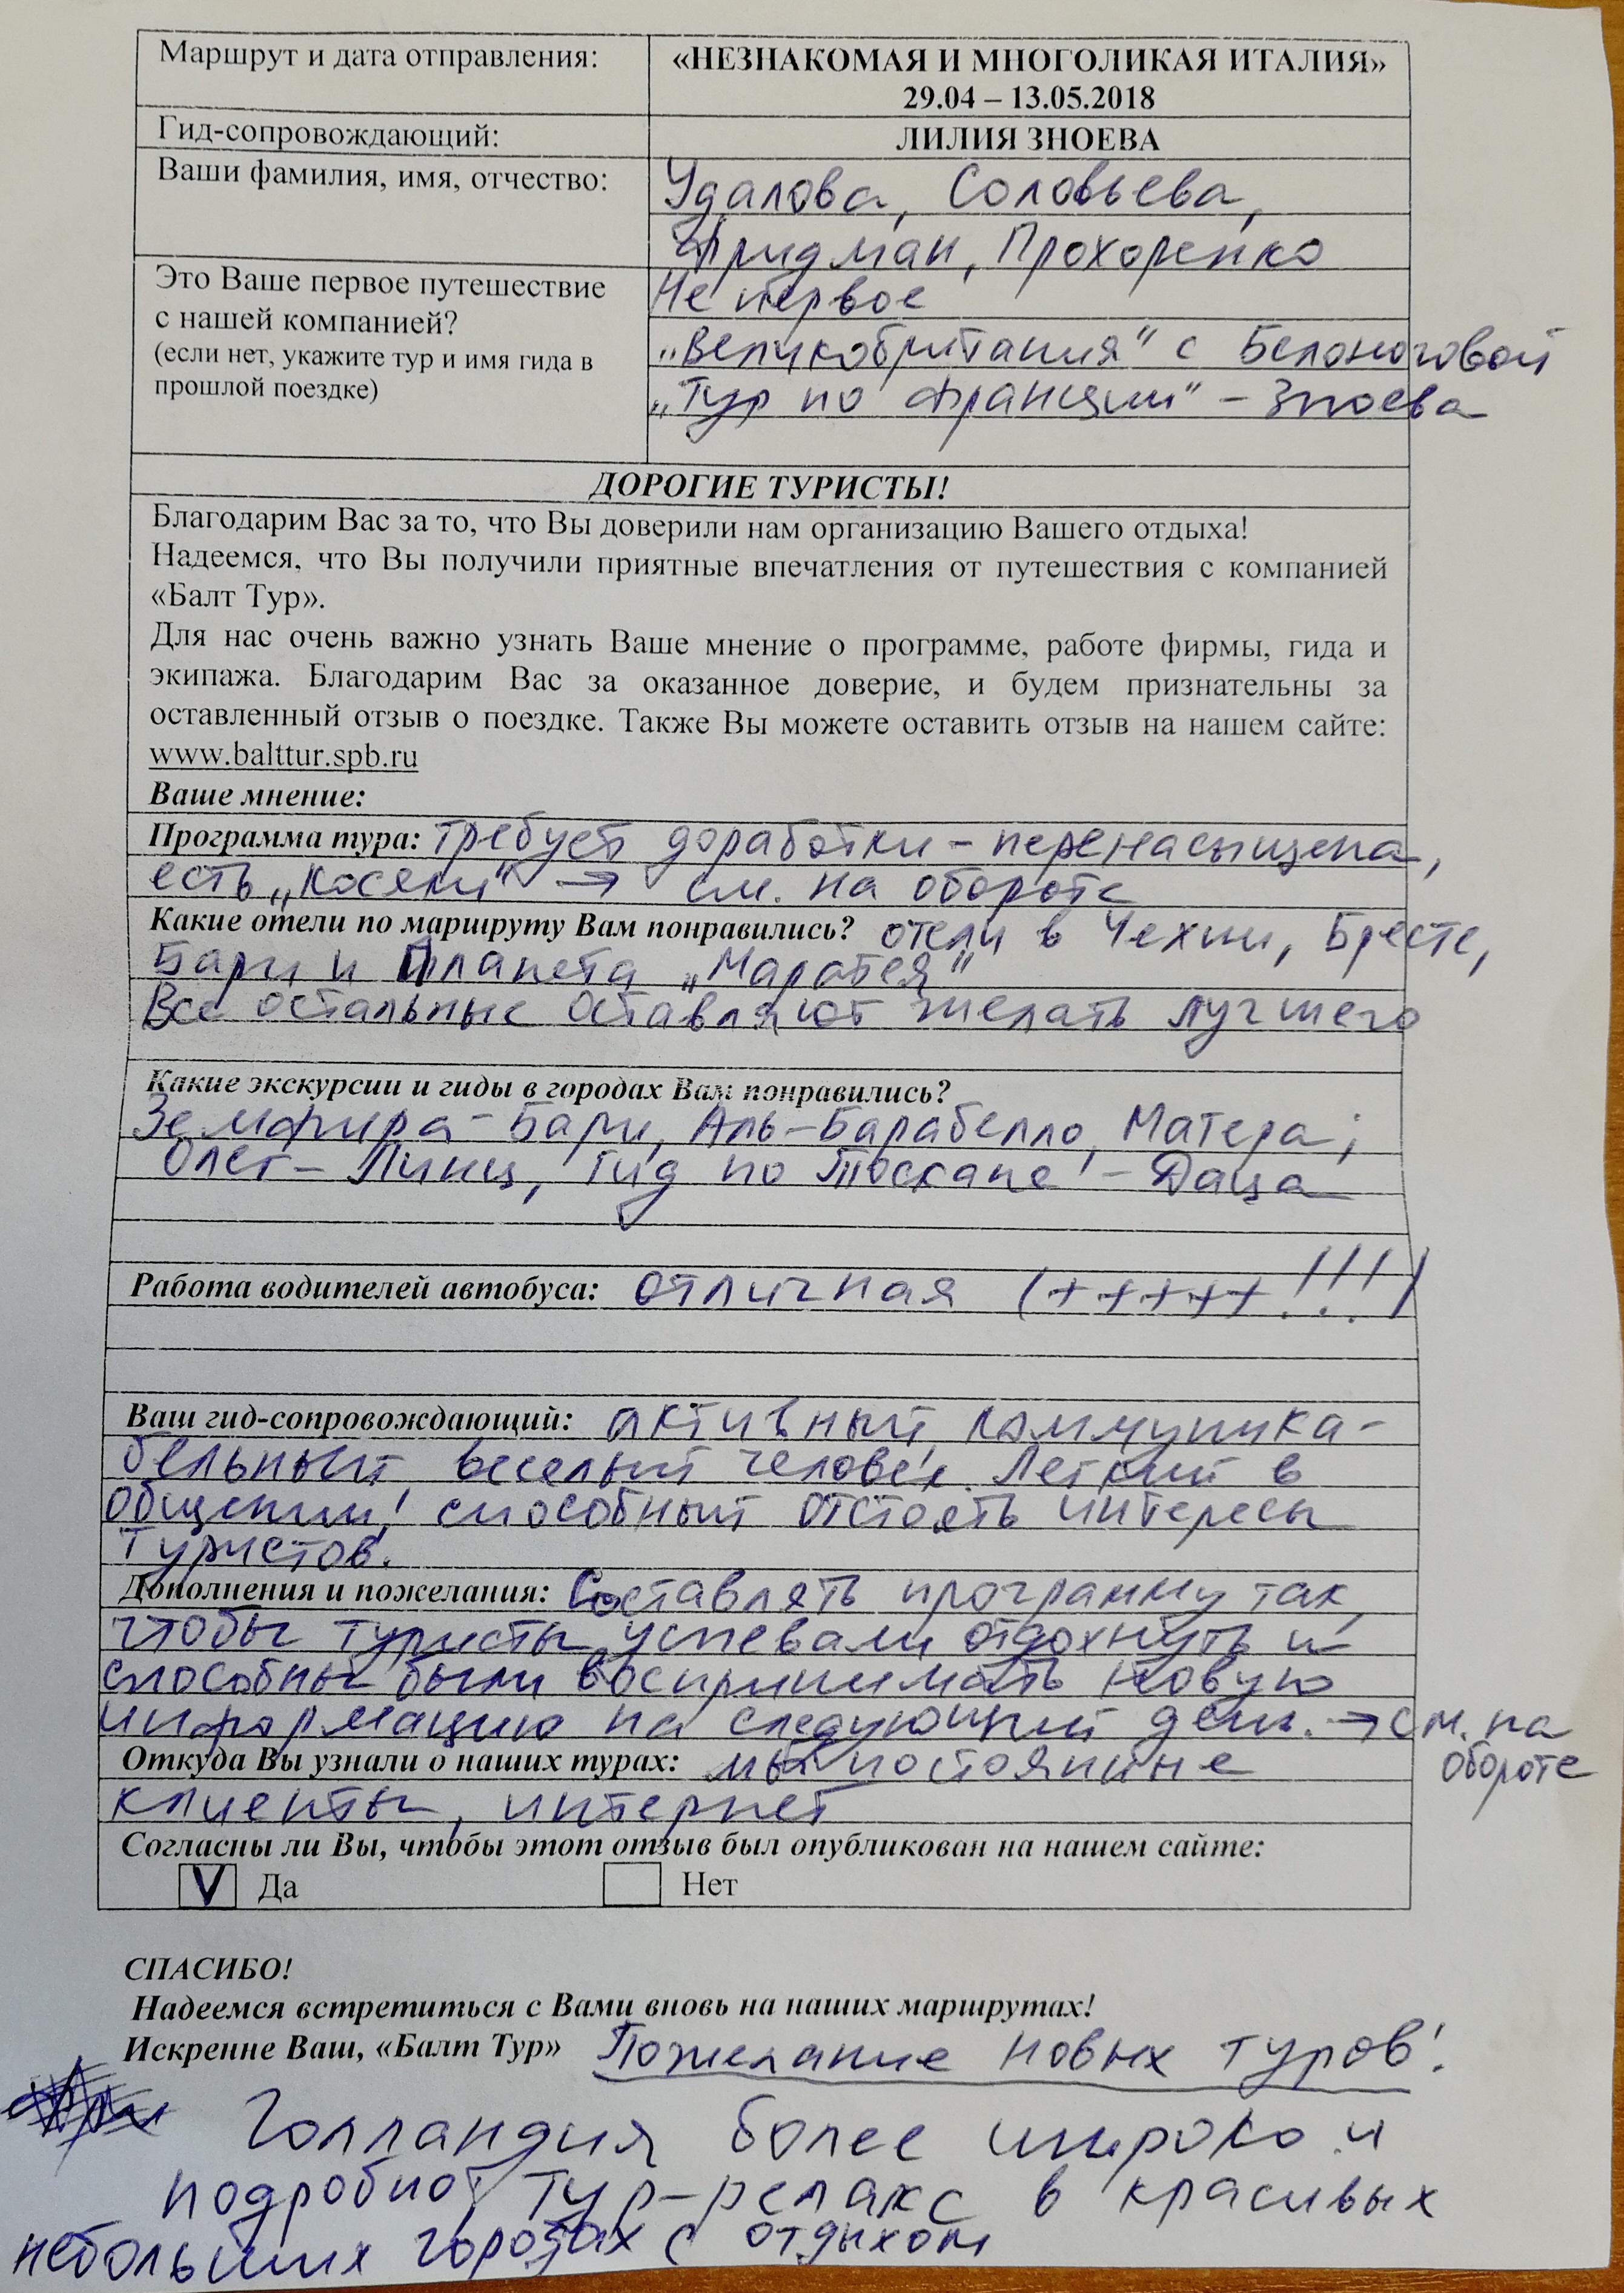 Маршрут и дата отправления:
«НЕЗНАКОМАЯ И МНОГОЛИКАЯ ИТАЛИЯ»
29.04 – 13.05.2018
Гид-сопровождающий:
ЛИЛИЯ ЗНОЕВА
Ваши фамилия, имя, отчество:
Удалова, Соловьева,
Фридман, Прохоренко
Это Ваше первое путешествие
с нашей компанией?
(если нет, укажите тур и имя гида в
прошлой поездке)
Не первое
„Великобритания" с Белоноговой
„Тур по Франции" – Зноева
ДОРОГИЕ ТУРИСТЫ!
Благодарим Вас за то, что Вы доверили нам организацию Вашего отдыха!
Надеемся, что Вы получили приятные впечатления от путешествия с компанией
«Балт Тур».
Для нас очень важно узнать Ваше мнение о программе, работе фирмы, гида и
экипажа. Благодарим Вас за оказанное доверие, и будем признательны за
оставленный отзыв о поездке. Также Вы можете оставить отзыв на нашем сайте:
www.balttur.spb.ru
Ваше мнение:
Программа тура: требует доработки – перенасыщена,
есть „косяки" → см. на обороте
Какие отели по маршруту Вам понравились? отели в Чехии, Бресте,
Бари и Планета „Маратея"
Все остальные оставляют желать лучшего
Какие экскурсии и гиды в городах Вам понравились?
Земфира – Бари, Аль-Барабелло, Матера;
Олег – Линц, гид по Тоскане – Даца
Работа водителей автобуса: отличная (+++++!!!)
Ваш гид-сопровождающий: активный, коммуника-
бельный, веселый человек. Легкий в
общении, способный отстоять интересы
туристов.
Дополнения и пожелания: Составлять программу так,
чтобы туристы успевали отдохнуть и
способны были воспринимать новую
информацию на следующий день. → см. на
обороте
Откуда Вы узнали о наших турах: мы постоянные
клиенты, интернет
Согласны ли Вы, чтобы этот отзыв был опубликован на нашем сайте:
V Да Нет
СПАСИБО!
Надеемся встретиться с Вами вновь на наших маршрутах!
Искренне Ваш, «Балт Тур» Пожелание новых туров!
Голландия более широко и
подробно, тур-релакс в красивых
небольших городах с отдыхом